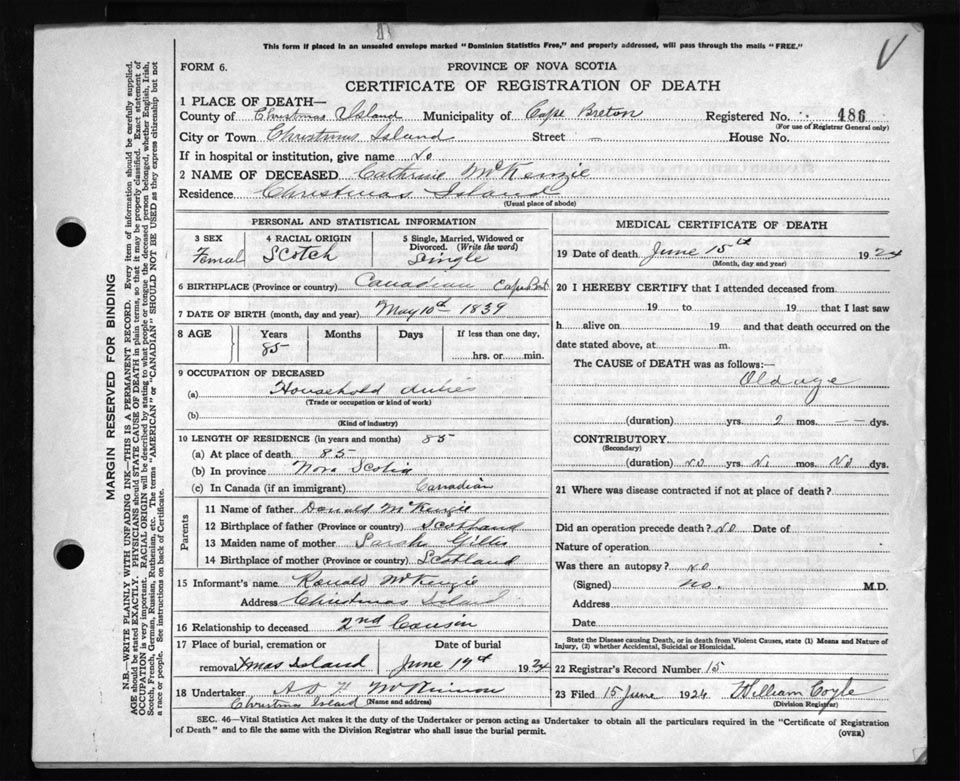 This form if placed in an unsealed envelope marked "Dominion Statistics Free," and properly addressed, will pass through the mails "FREE."
FORM 6. PROVINCE OF NOVA SCOTIA
CERTIFICATE OF REGISTRATION OF DEATH
1 PLACE OF DEATH—
County of Christmas Island Municipality of Cape Breton Registered No. 486
(For use of Registrar General only)
City or Town Christmas Island Street — House No.
If in hospital or institution, give name No
2 NAME OF DECEASED Cathrine McKenzie
Residence Christmas Island
(Usual place of abode)
PERSONAL AND STATISTICAL INFORMATION
3 SEX 4 RACIAL ORIGIN 5 Single, Married, Widowed or
Divorced. (Write the word)
Femal Scotch Single
6 BIRTHPLACE (Province or country) Canadian Cape Bret
7 DATE OF BIRTH (month, day and year) May 10th 1839
8 AGE Years Months Days If less than one day,
85 hrs. or min.
9 OCCUPATION OF DECEASED
(a) Household duties
(Trade or occupation or kind of work)
(b)
(Kind of industry)
10 LENGTH OF RESIDENCE (in years and months) 85
(a) At place of death 85
(b) In province Nova Scotia
(c) In Canada (if an immigrant) Canadian
Parents
11 Name of father Donald McKenzie
12 Birthplace of father (Province or country) Scotland
13 Maiden name of mother Sarah Gillis
14 Birthplace of mother (Province or country) Scotland
15 Informant's name Ronald McKenzie
Address Christmas Island
16 Relationship to deceased 2nd Cousin
17 Place of burial, cremation or Date of burial
removal Xmas Island June 17th 1924
18 Undertaker McKinnon
Christmas Island (Name and address)
MEDICAL CERTIFICATE OF DEATH
19 Date of death June 15th 1924
(Month, day and year)
20 I HEREBY CERTIFY that I attended deceased from
19 to 19 that I last saw
h alive on 19 and that death occurred on the
date stated above, at m.
The CAUSE OF DEATH was as follows:—
Old age
(duration) yrs. 2 mos. — — dys.
CONTRIBUTORY
(Secondary)
(duration) No yrs. No mos. No dys.
21 Where was disease contracted if not at place of death?
Did an operation precede death? No Date of
Nature of operation
Was there an autopsy? No
(Signed) no. M.D.
Address
Date
State the Disease causing Death, or in death from Violent Causes, state (1) Means and Nature of
Injury, (2) whether Accidental, Suicidal or Homicidal.
22 Registrar's Record Number 15
23 Filed 15 June 1924 William Coyle
(Division Registrar)
SEC. 46—Vital Statistics Act makes it the duty of the Undertaker or person acting as Undertaker to obtain all the particulars required in the "Certificate of Registration
of Death" and to file the same with the Division Registrar who shall issue the burial permit. (OVER)
MARGIN RESERVED FOR BINDING
N.B.—WRITE PLAINLY WITH UNFADING INK—THIS IS A PERMANENT RECORD. Every item of information should be carefully supplied.
AGE should be stated EXACTLY. PHYSICIANS should STATE CAUSE OF DEATH in plain terms, so that it may be properly classified. Exact statement of
OCCUPATION is very important. RACIAL ORIGIN will be described by stating to what people or tongue the deceased person belonged, whether English, Irish,
Scotch, French, German, Russian, Ruthenian, etc. The terms "AMERICAN" or "CANADIAN" SHOULD NOT BE USED as they express citizenship but not
a race or people. See instructions on back of Certificate.